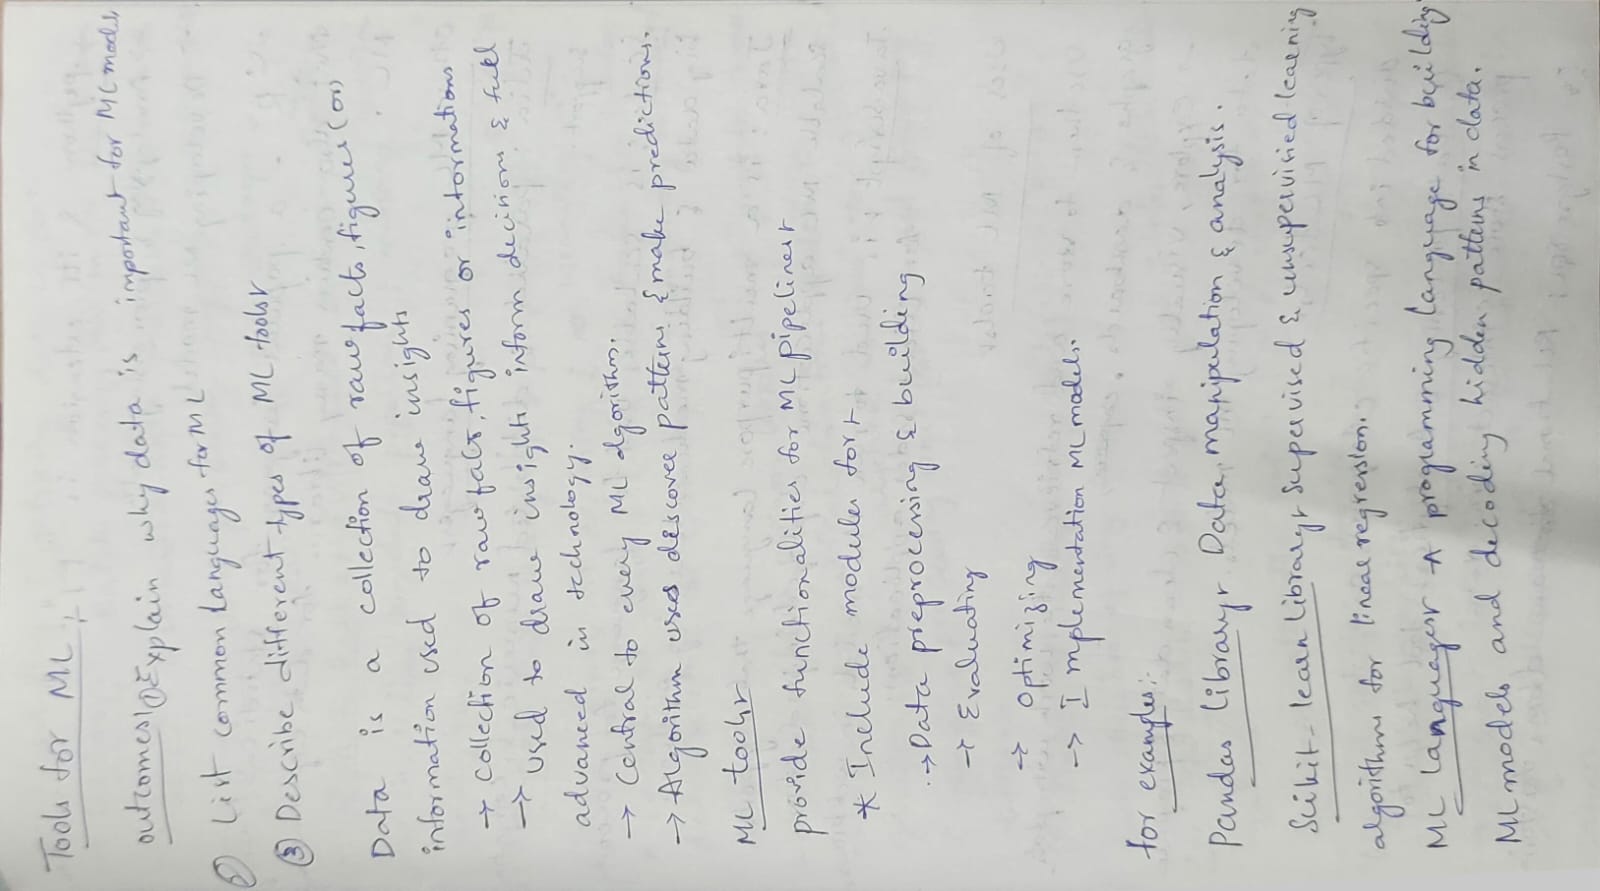 Tools for ML :-
outcomes:- ① Explain why data is important for ML models
② List common Languages for ML
③ Describe different types of ML tools:-
Data is a collection of raw facts, figures (or)
information used to draw insights
→ collection of raw facts, figures or informations
→ used to draw insights inform decisions & fuel
advanced in technology.
→ Central to every ML algorithm.
→ Algorithm uses discover patterns & make predictions.
ML tools:-
provide functionalities for ML pipelines:-
* Include modules for:-
→ Data preprocessing & building
→ Evaluating
→ Optimizing
→ Implementation ML models.
for examples:-
Pandas library:- Data manipulation & analysis.
Scikit-learn library:- Supervised & unsupervisied learning
algorithms for linear regression.
ML languages:- A programming language for building
ML models and decoding hidden patterns in data.